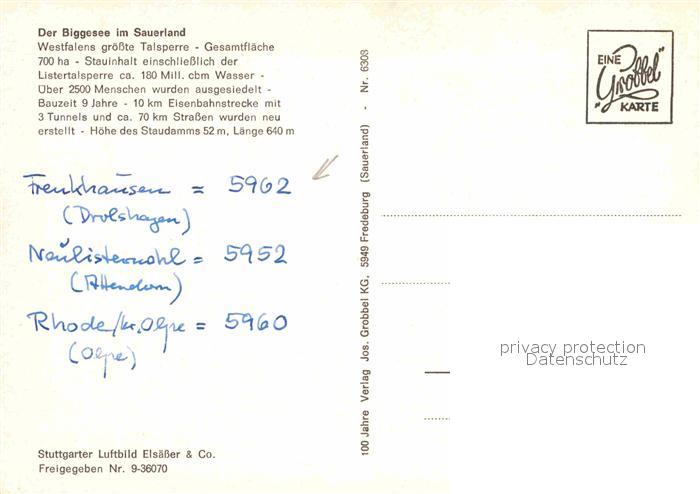 Der Biggesee im Sauerland
Westfalens größte Talsperre - Gesamtfläche
700 ha - Stauinhalt einschließlich der
Listertalsperre ca. 180 Mill. cbm Wasser -
Über 2500 Menschen wurden ausgesiedelt -
Bauzeit 9 Jahre - 10 km Eisenbahnstrecke mit
3 Tunnels und ca. 70 km Straßen wurden neu
erstellt - Höhe des Staudamms 52 m, Länge 640 m
Frenkhausen = 5962
(Drolshagen)
Neulisternohl = 5952
(Attendorn)
Rhode/kr. Olpe = 5960
(Olpe)
Stuttgarter Luftbild Elsäßer & Co.
Freigegeben Nr. 9-36070
100 Jahre Verlag Jos. Grobbel KG, 5949 Fredeburg (Sauerland) - Nr. 6303
EINE
"Grobbel"
KARTE
privacy protection
Datenschutz